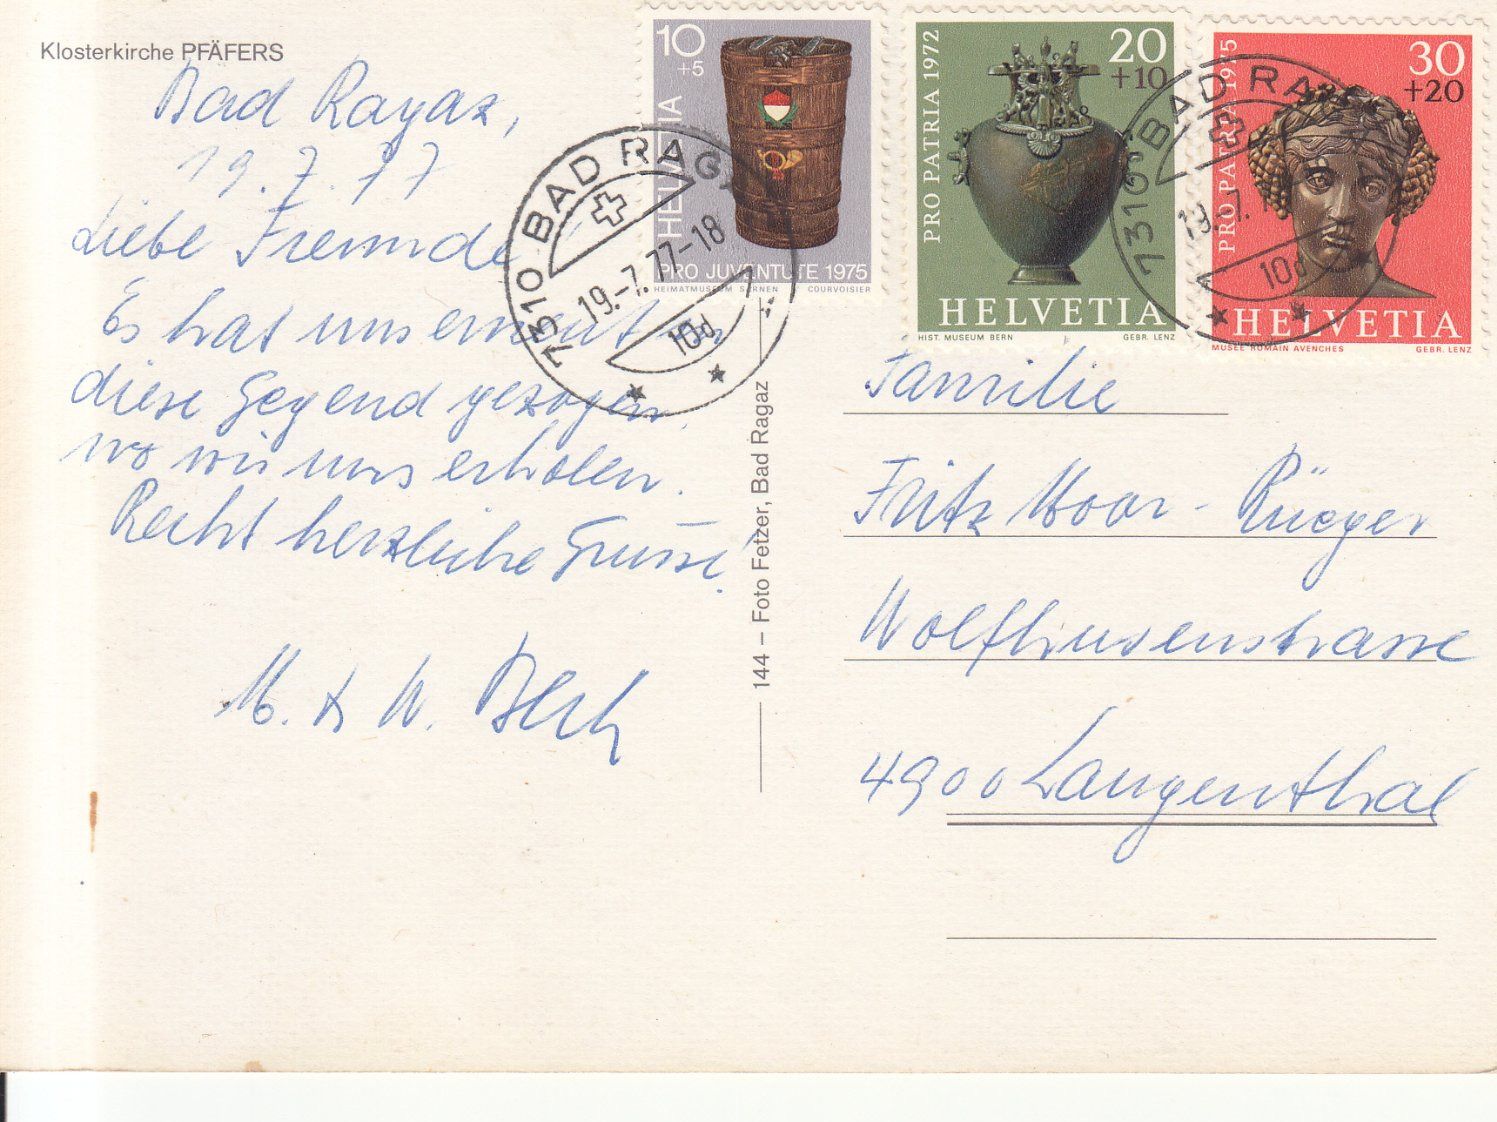 Klosterkirche PFÄFERS
Bad Ragaz,
19. 7. 77
Liebe Freunde
Es hat uns erneut in
diese Gegend gezogen,
wo wir uns erholen.
Recht herzliche Grüsse!
M. & W.
144 – Foto Fetzer, Bad Ragaz
10
+5
HELVETIA
PRO JUVENTUTE 1975
HEIMATMUSEUM SARNEN COURVOISIER
7310 BAD RAGAZ
19.-7.77-18
10d
20
+10
PRO PATRIA 1972
HELVETIA
HIST. MUSEUM BERN GEBR. LENZ
7310 BAD RA
19.-7.
10d
30
+20
PRO PATRIA 1975
HELVETIA
MUSÉE ROMAIN AVENCHES GEBR. LENZ
Familie
Fritz Moor-Rüeger
Wolfhusenstrasse
4900 Langenthal